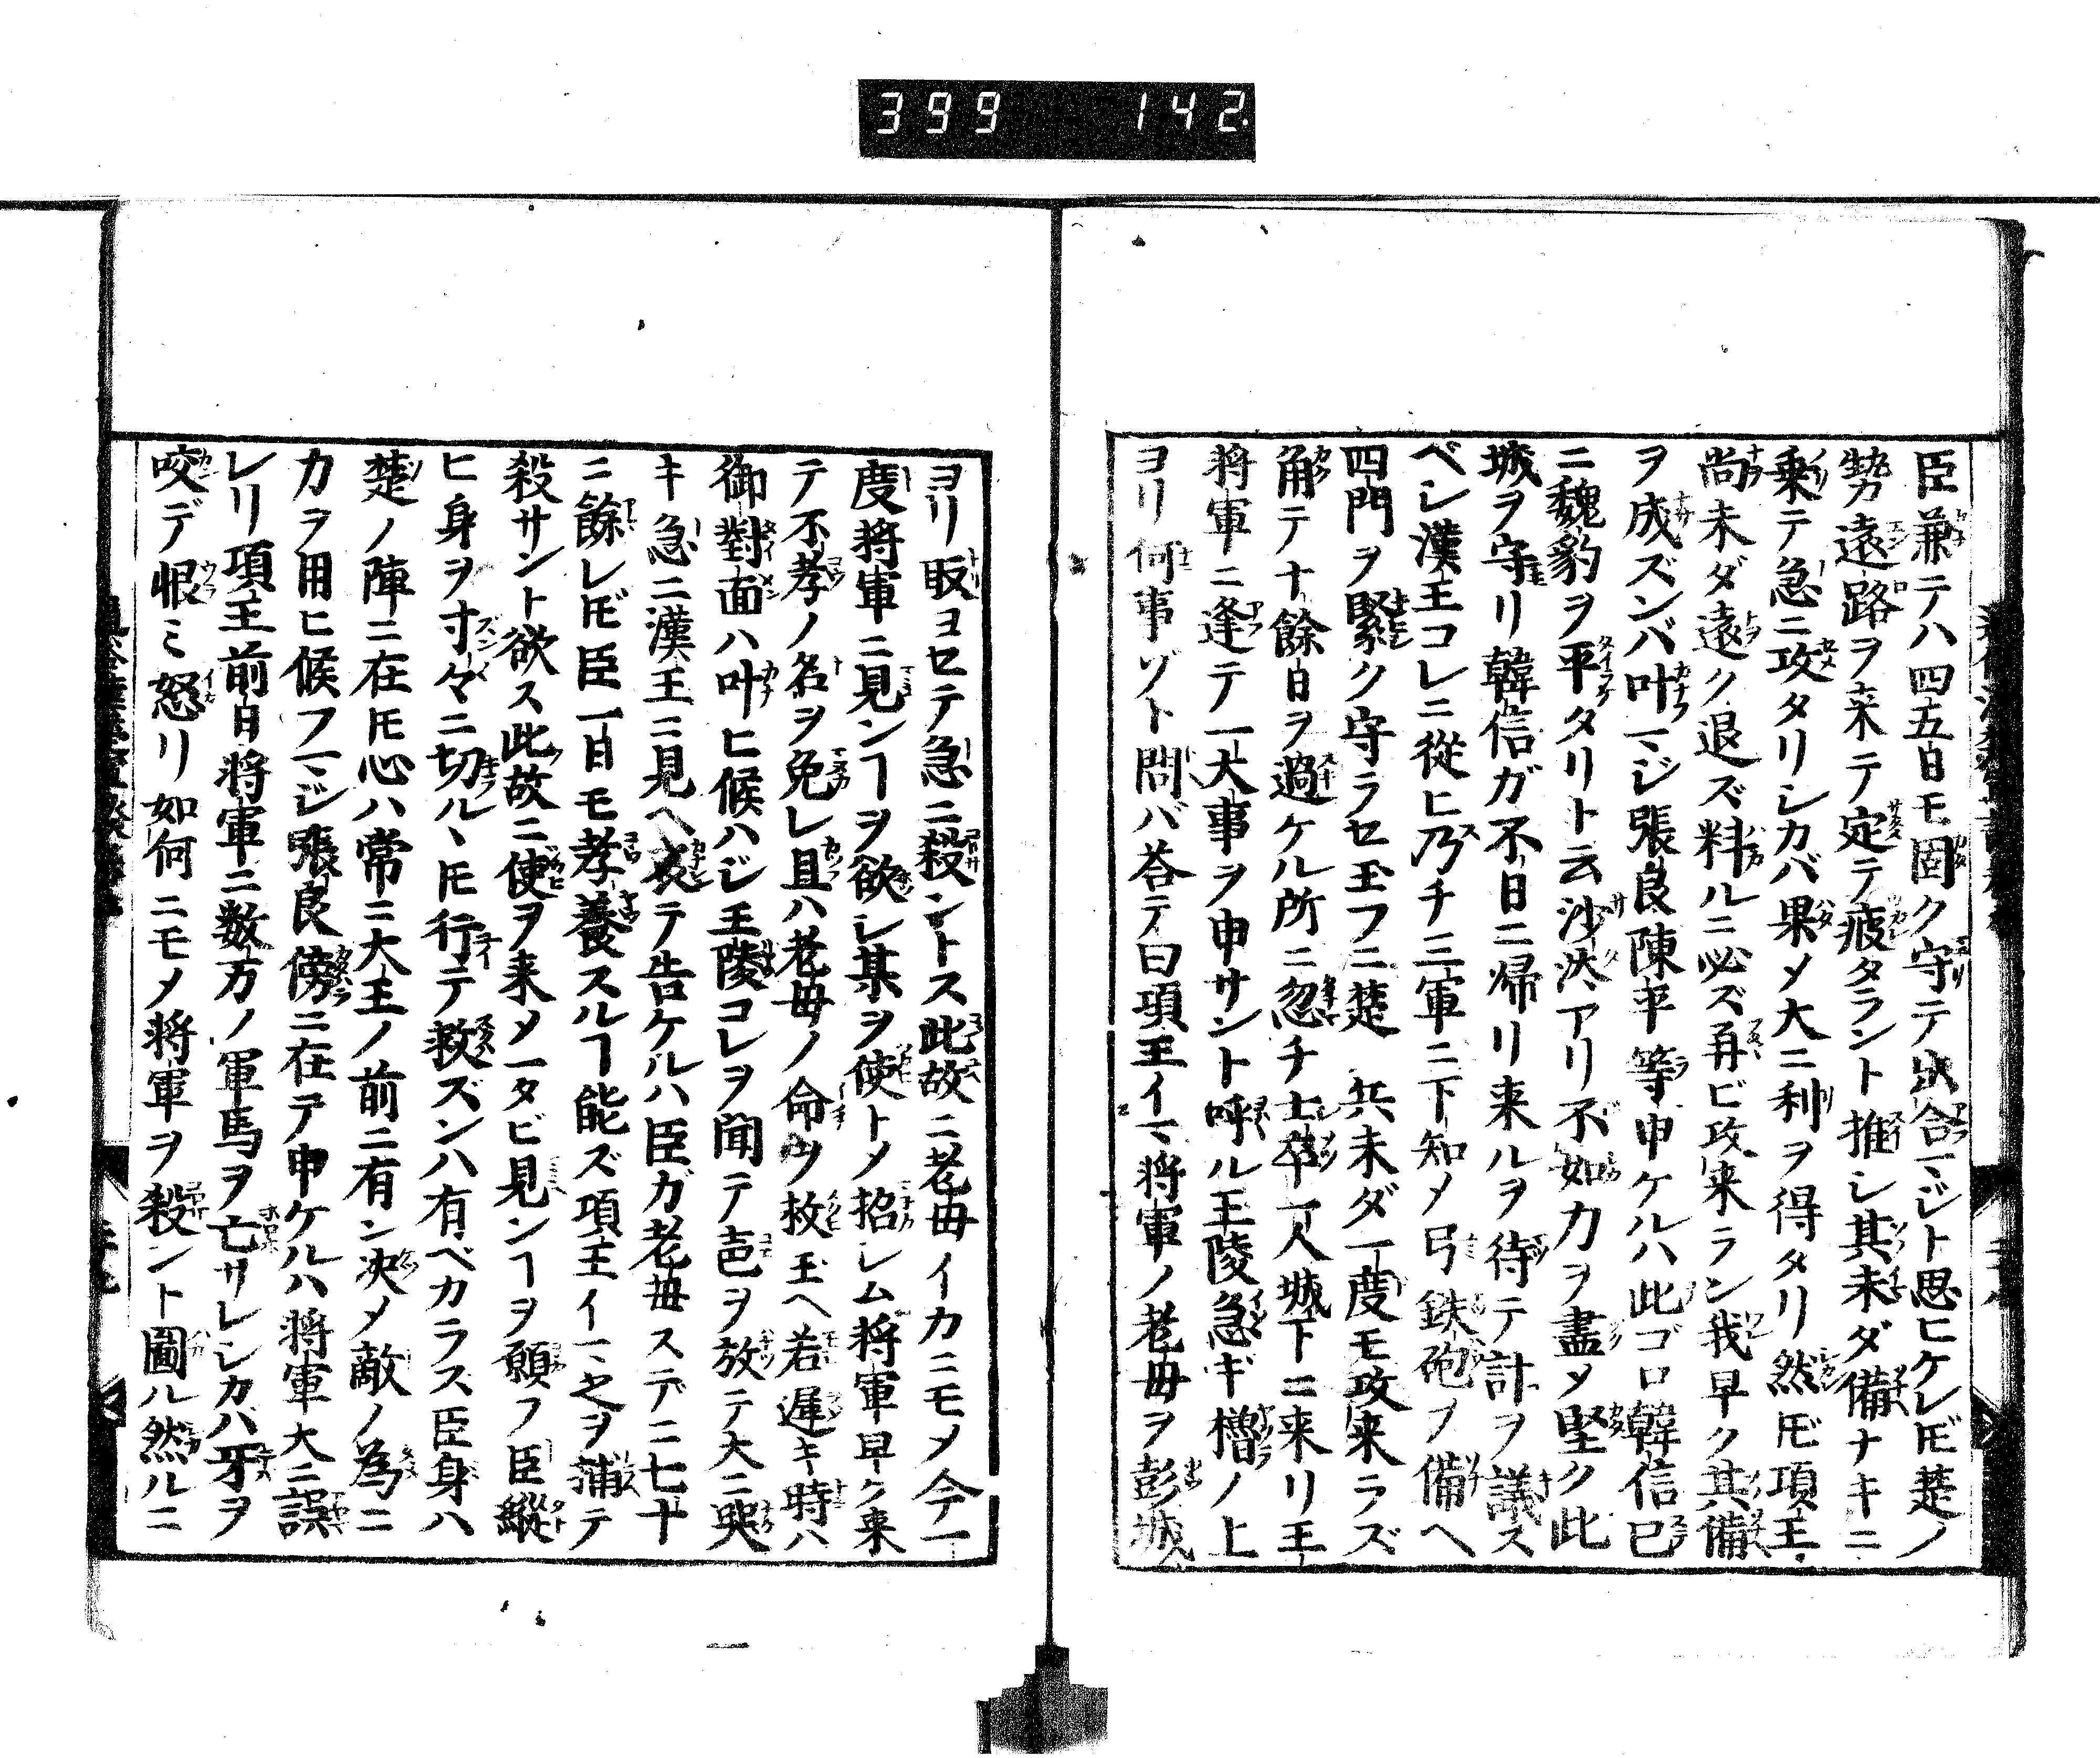 399 142
臣兼テハ四五日モ固ク守テ出合マジト思ヒケレ𪜈楚ノ
勢遠路ヲ来テ定テ疲タラント推シ其未ダ備ナキニ
乗テ急ニ攻タリシカバ果〆大ニ利ヲ得タリ然𪜈項王
尚未ダ遠ク退ズ料ルニ必ズ再ビ攻来ラン我早ク其備
ヲ成ズンバ叶マジ張良陳平等申ケルハ此ゴロ韓信已
ニ魏豹ヲ平タリト云沙汰アリ不如力ヲ盡〆堅ク此
城ヲ守リ韓信ガ不日ニ帰リ来ルヲ待テ計ヲ議ス
ベシ漢王コレニ從ヒ乃チ三軍ニ下知〆弓鉄砲ヲ備ヘ
四門ヲ緊ク守ラセ玉フニ楚兵未ダ一度モ攻来ラズ
角テ十餘日ヲ過ケル所ニ忽チ士卒一人城下ニ来リ王
将軍ニ逢テ一大事ヲ申サント呼ル王陵急ギ櫓ノ上
ヨリ何事ゾト問バ荅テ曰項王イマ将軍ノ老母ヲ彭城
ヨリ取ヨセテ急ニ殺ントス此故ニ老母イカニモ〆今一
度将軍ニ見ンヿヲ欲シ某ヲ使ト〆招シム将軍早ク来
テ不孝ノ名ヲ免レ且ハ老母ノ命ヲ救玉ヘ若遅キ時ハ
御對面ハ叶ヒ候ハジ王陵コレヲ聞テ声ヲ放テ大ニ哭
キ急ニ漢王ニ見ヘ哀テ告ケルハ臣ガ老母ステニ七十
ニ餘レ𪜈臣一日モ孝養スルヿ能ズ項王イマ之ヲ捕テ
殺サント欲ス此故ニ使ヲ来〆一タビ見ンヿヲ願フ臣縦
ヒ身ヲ寸々ニ切ルヽ𪜈行テ救ズンハ有ベカラス臣身ハ
楚ノ陣ニ在𪜈心ハ常ニ大王ノ前ニ有ン决〆敵ノ為ニ
力ヲ用ヒ候フマジ張良傍ニ在テ申ケルハ将軍大ニ誤
レリ項王前日将軍ニ数万ノ軍馬ヲ亡サレシカバ牙ヲ
咬デ恨ミ怒リ如何ニモ〆将軍ヲ殺ント圖ル然ルニ